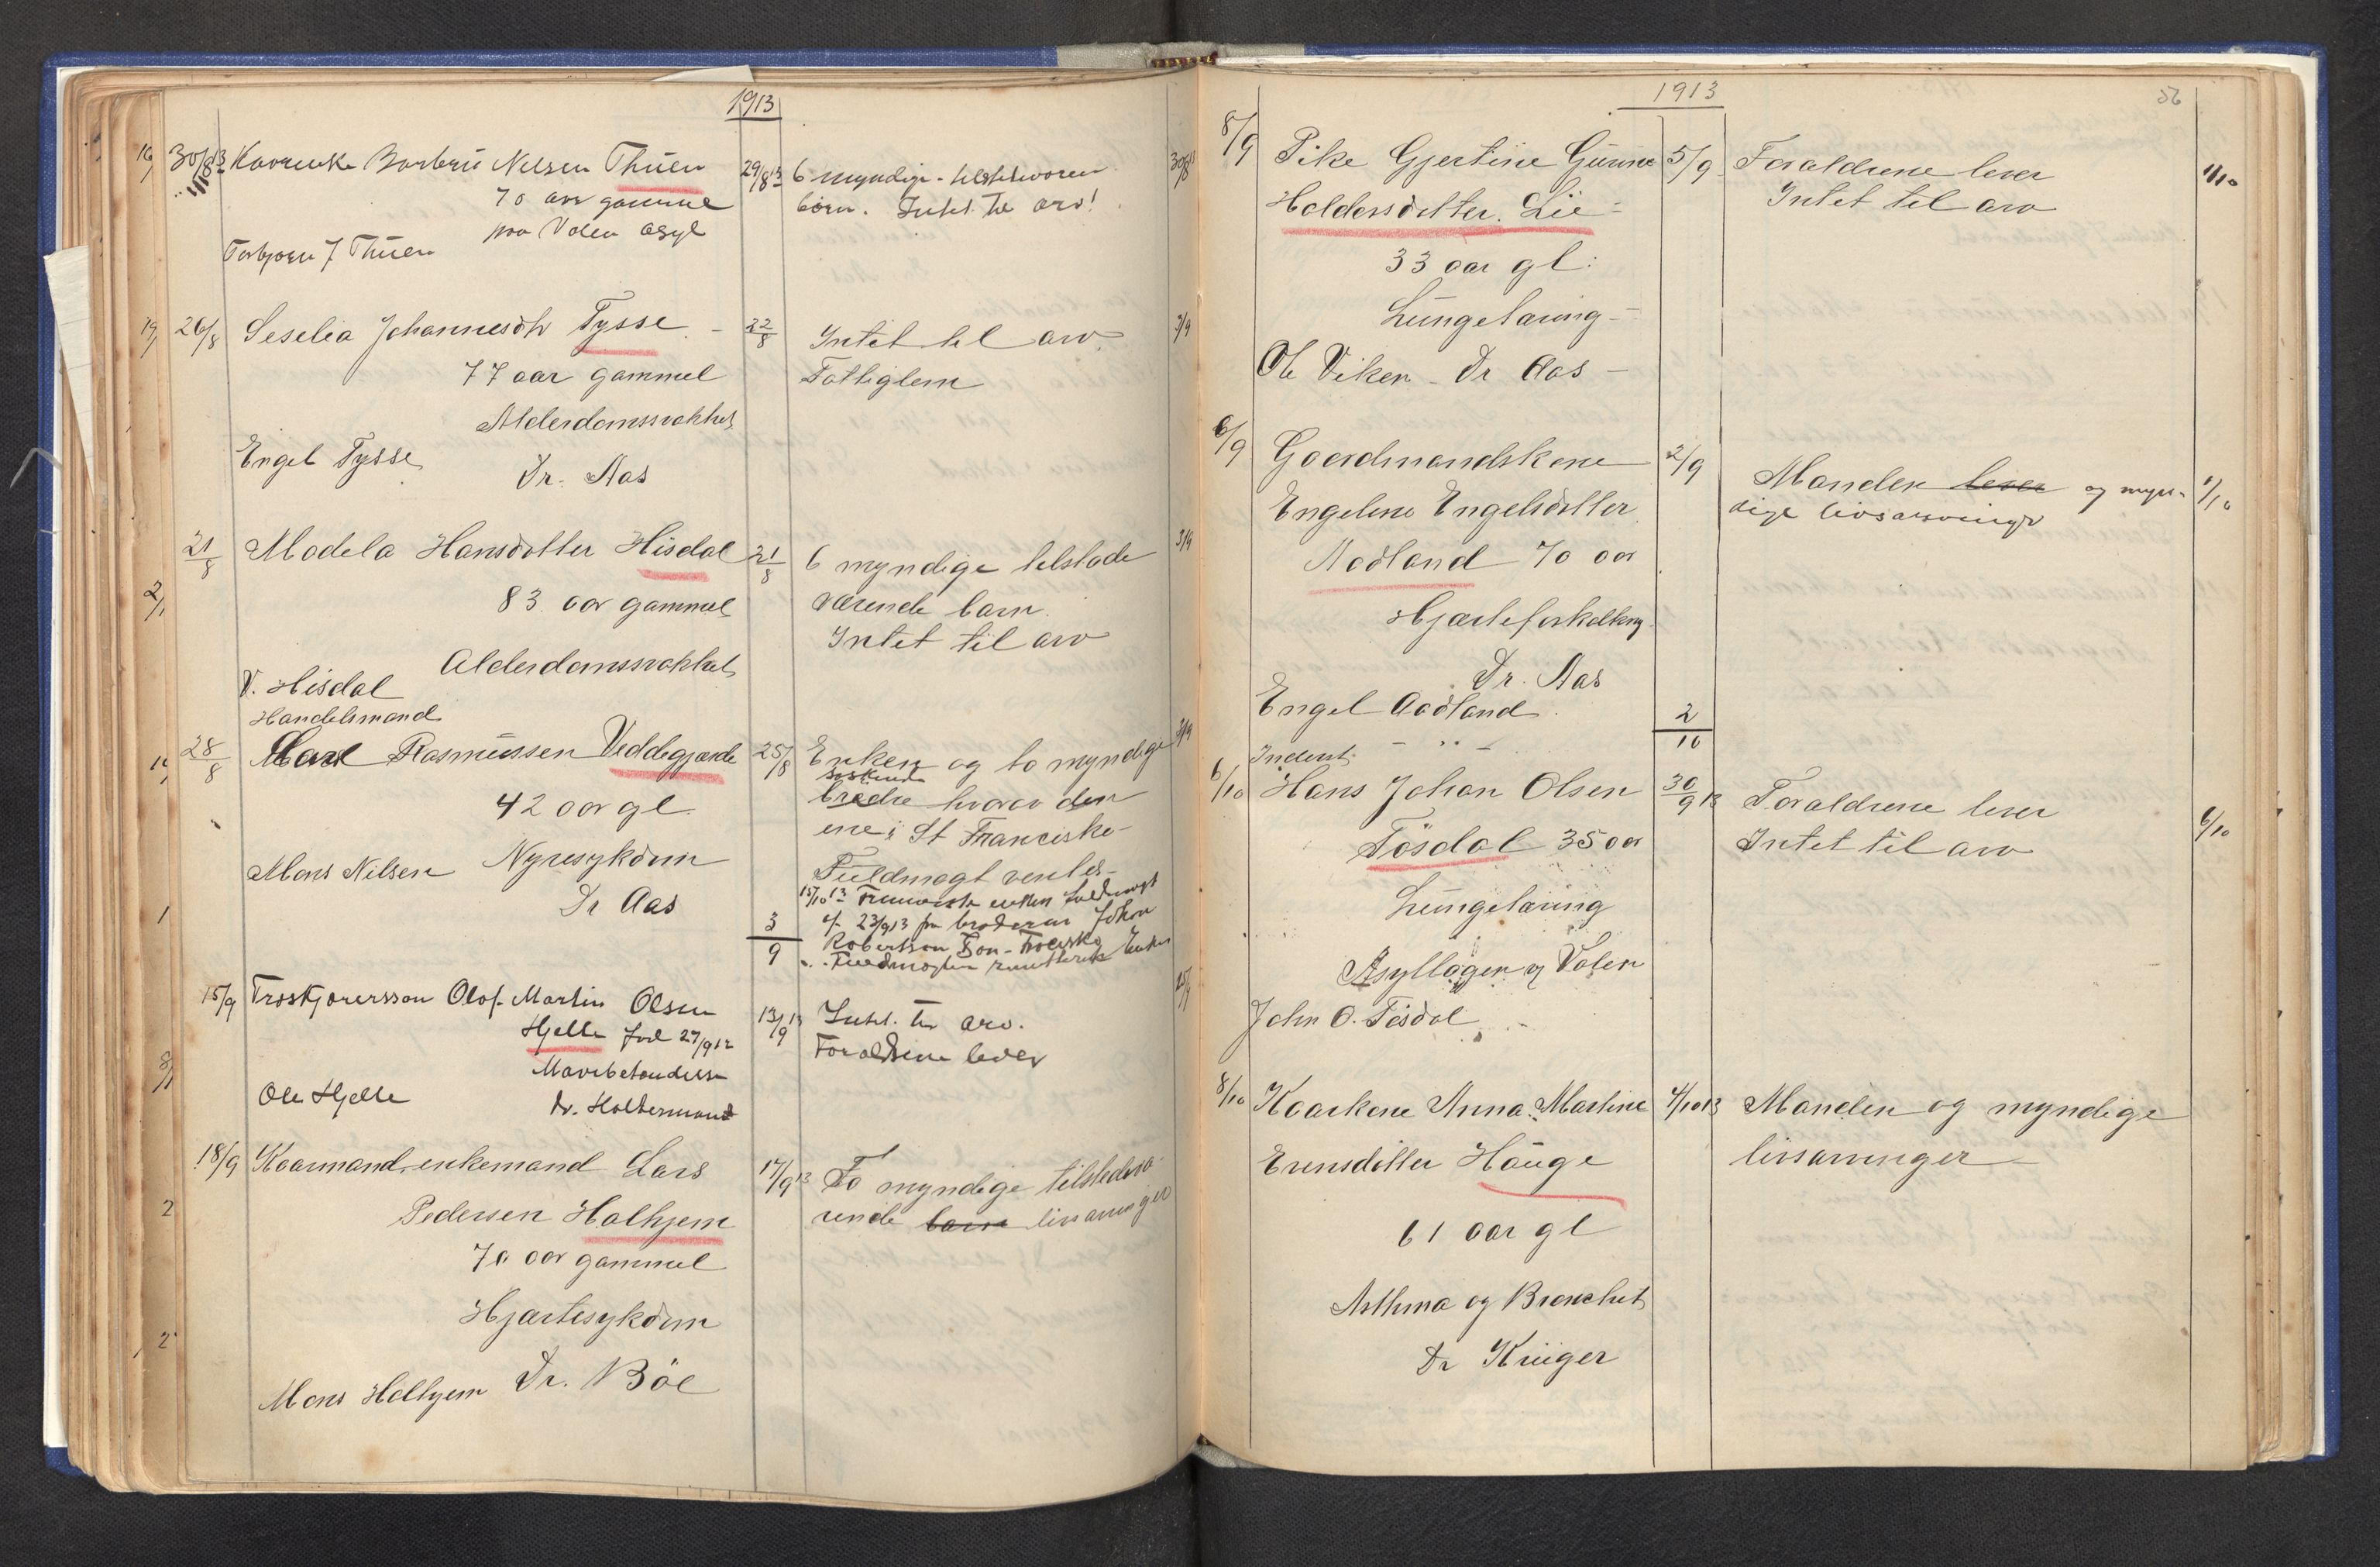 1913
30/8 13 Kaarenke Barbrü Nilsen Thüen 29/8 13 6 myndige tilstedværen 30/8 13
70 aar gammel børn. Intet til arv!
paa Valen Asyl
Torbjørn J Thüen
26/8 Seselia Johannesdtr Tysse 22/8 Intet til arv 3/9
77 aar gammel Fattiglem
Alderdomssvakhet
Engel Tysse Dr. Aas
21/8 Madela Hansdotter Hisdal 21/8 6 myndige tilstede 3/9
83 aar gammel værende barn.
Alderdomssvakhet Intet til arv
V. Hisdal
Handelsmand
28/8 Rasmüssen Veddegjærde 25/8 Enken og to myndige 3/9
søskende
42 aar gl. brødre hvorav den
ene i St Francisko
Mons Nilsen Nyresykdom Füldmagt ventes
Dr Aas 15/10 13 enken fuldmagt
3/9 23/9 13 fra broderen Johan
Robertson
15/9 Olof Martin Olsen 13/9 13 Intet til arv.
Hjelle fød 27/9 12 Forældrene lever
Mavebetændelse
Ole Hjelle Dr. Holtermand
18/9 Kaarmand enkemand Lars 17/9 13 To myndige tilstedevæ-
Pedersen Holhjem rende barn livsarvinger
70 aar gammel
Hjærtesykdom
Mons Holhjem Dr. Böe
1913
56
8/9 Pike Gjertine Gürine 5/9 Forældrene lever 1/10
Haldorsdotter Lie Intet til arv
33 aar gl:
Lüngetæring
Ole Viken Dr Aas
6/9 Gaardmandskone 2/9 Manden lever og myn- 1/10
Engeline Engelsdotter dige livsarvinger
Aadland 70 aar
Hjærteforkalkng
Dr. Aas
Engel Aadland
2/10
Inderst
6/10 Hans Johan Olsen 30/9 13 Forældrene lever 6/10
Tösdal 35 aar Intet til arv
Lüngetæring
Asyllægen og Valen
John O. Tösdal
8/10 Kaarkone Anna Martine 4/10 13 Manden og myndige
Hauge livsarvinger
61 aar gl
Asthma og Bronchit
Dr Krüger